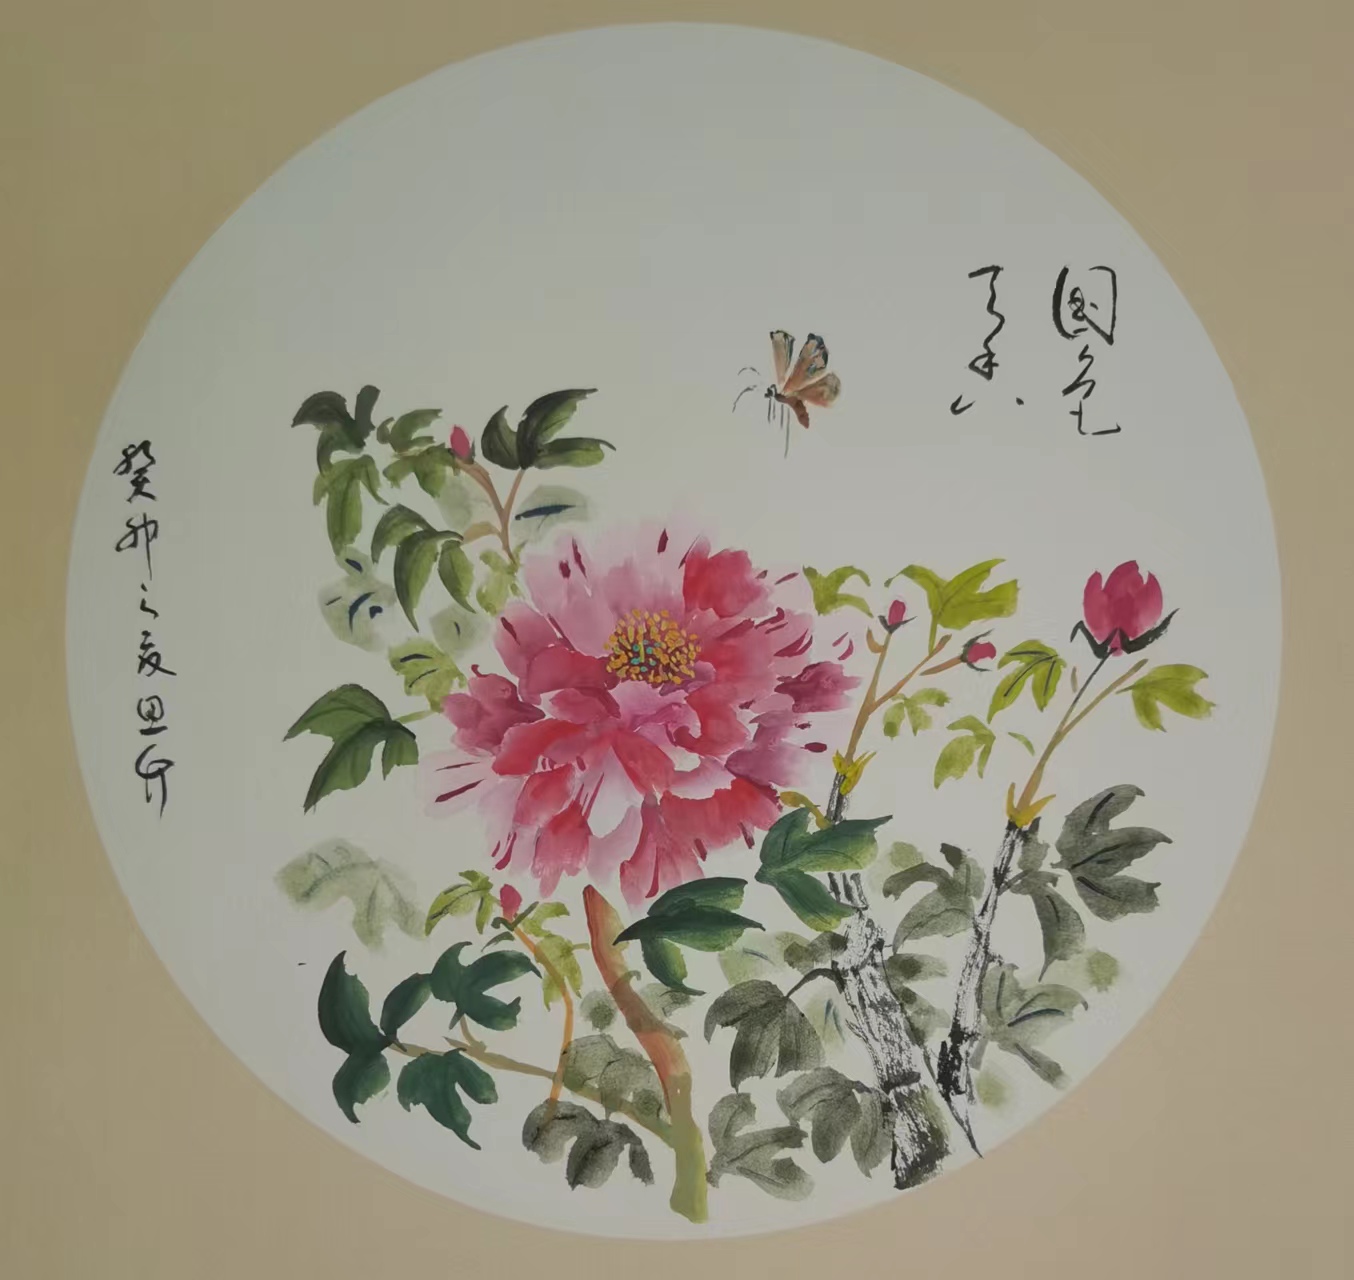 國色
天香
癸卯之夏思